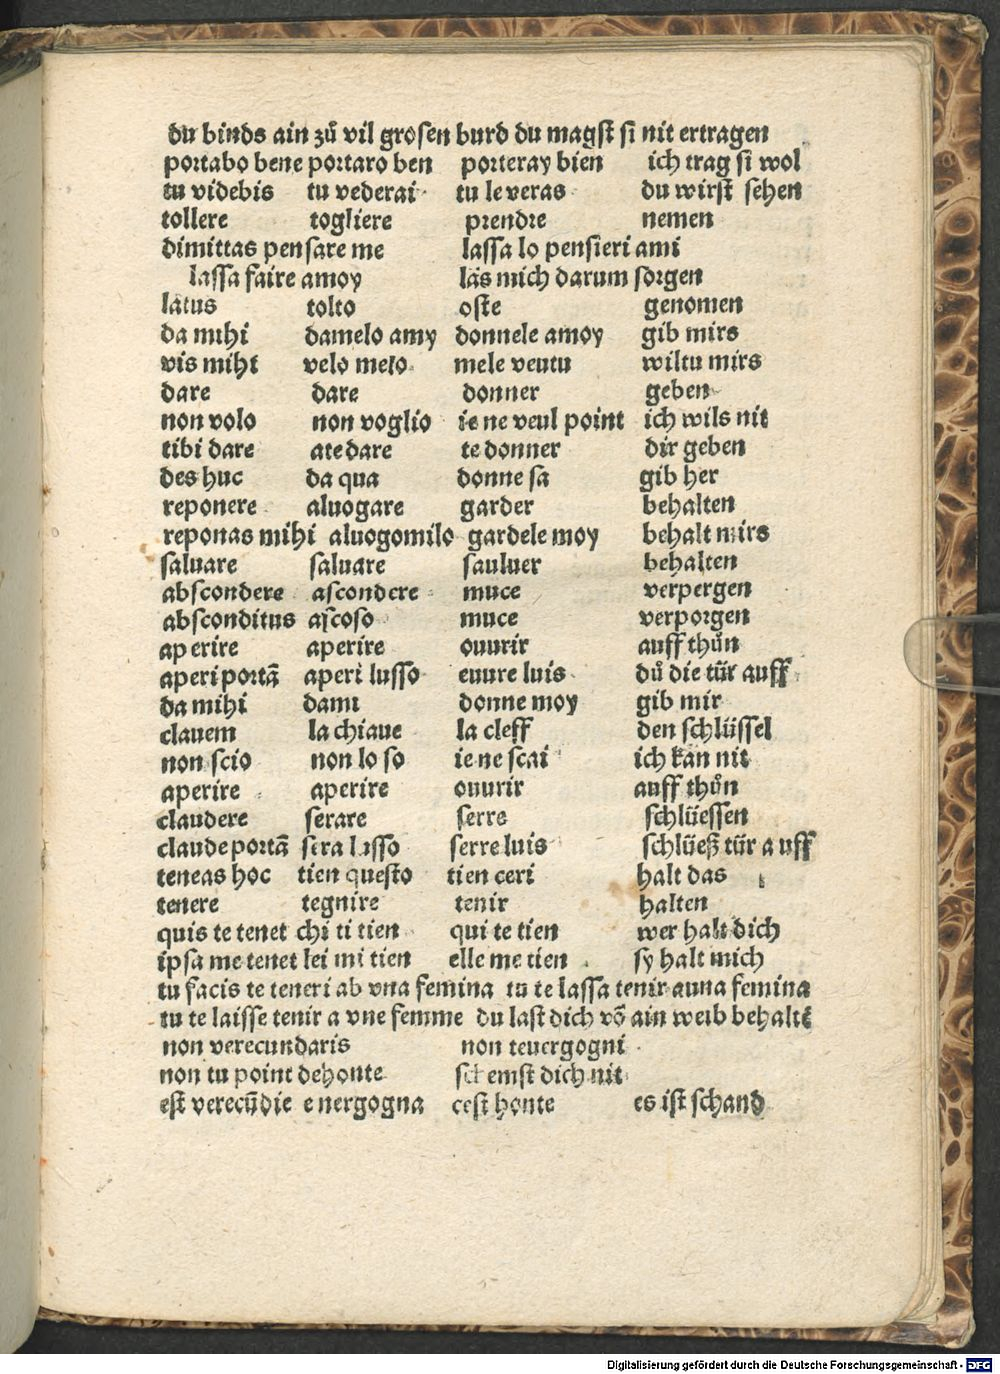 du binds ain zů vil grosen burd du magst si nit ertragen
portabo bene portaro ben porteray bien ich trag si wol
tu videbis tu vederai tu le veras du wirst sehen
tollere togliere prendre nemen
dimittas pensare me lassa lo pensieri ami
lassa faire amoy läs mich darum sorgen
latus tolto oste genomen
da mihi damelo amy donnele amoy gib mirs
vis mihi velo melo mele veutu wiltu mirs
dare dare donner geben
non volo non voglio ie ne veul point ich wils nit
tibi dare ate dare te donner dir geben
des huc da qua donne sa gib her
reponere aluogare garder behalten
reponas mihi aluogomilo gardele moy behalt mirs
saluare saluare sauluer behalten
abscondere ascondere muce verpergen
absconditus ascoso muce verporgen
aperire aperire ouurir auff thůn
aperi portā aperi lusso euure luis dů die tür auff
da mihi dami donne moy gib mir
clauem la chiaue la cleff den schlüssel
non scio non lo so ie ne scai ich kan nit
aperire aperire ouurir auff thůn
claudere serare serre schlüessen
claude portā sera lusso serre luis schlüeß tür auff
teneas hoc tien questo tien ceri halt das
tenere tegnire tenir halten
quis te tenet chi ti tien qui te tien wer halt dich
ipsa me tenet lei mi tien elle me tien sy halt mich
tu facis te teneri ab vna femina tu te lassa tenir auna femina
tu te laisse tenir a vne femme du last dich vō ain weib behaltē
non verecundaris non teuergogni
non tu point dehonte schemst dich nit
est verecūdie e nergogna cest honte es ist schand
Digitalisierung gefördert durch die Deutsche Forschungsgemeinschaft - DFG